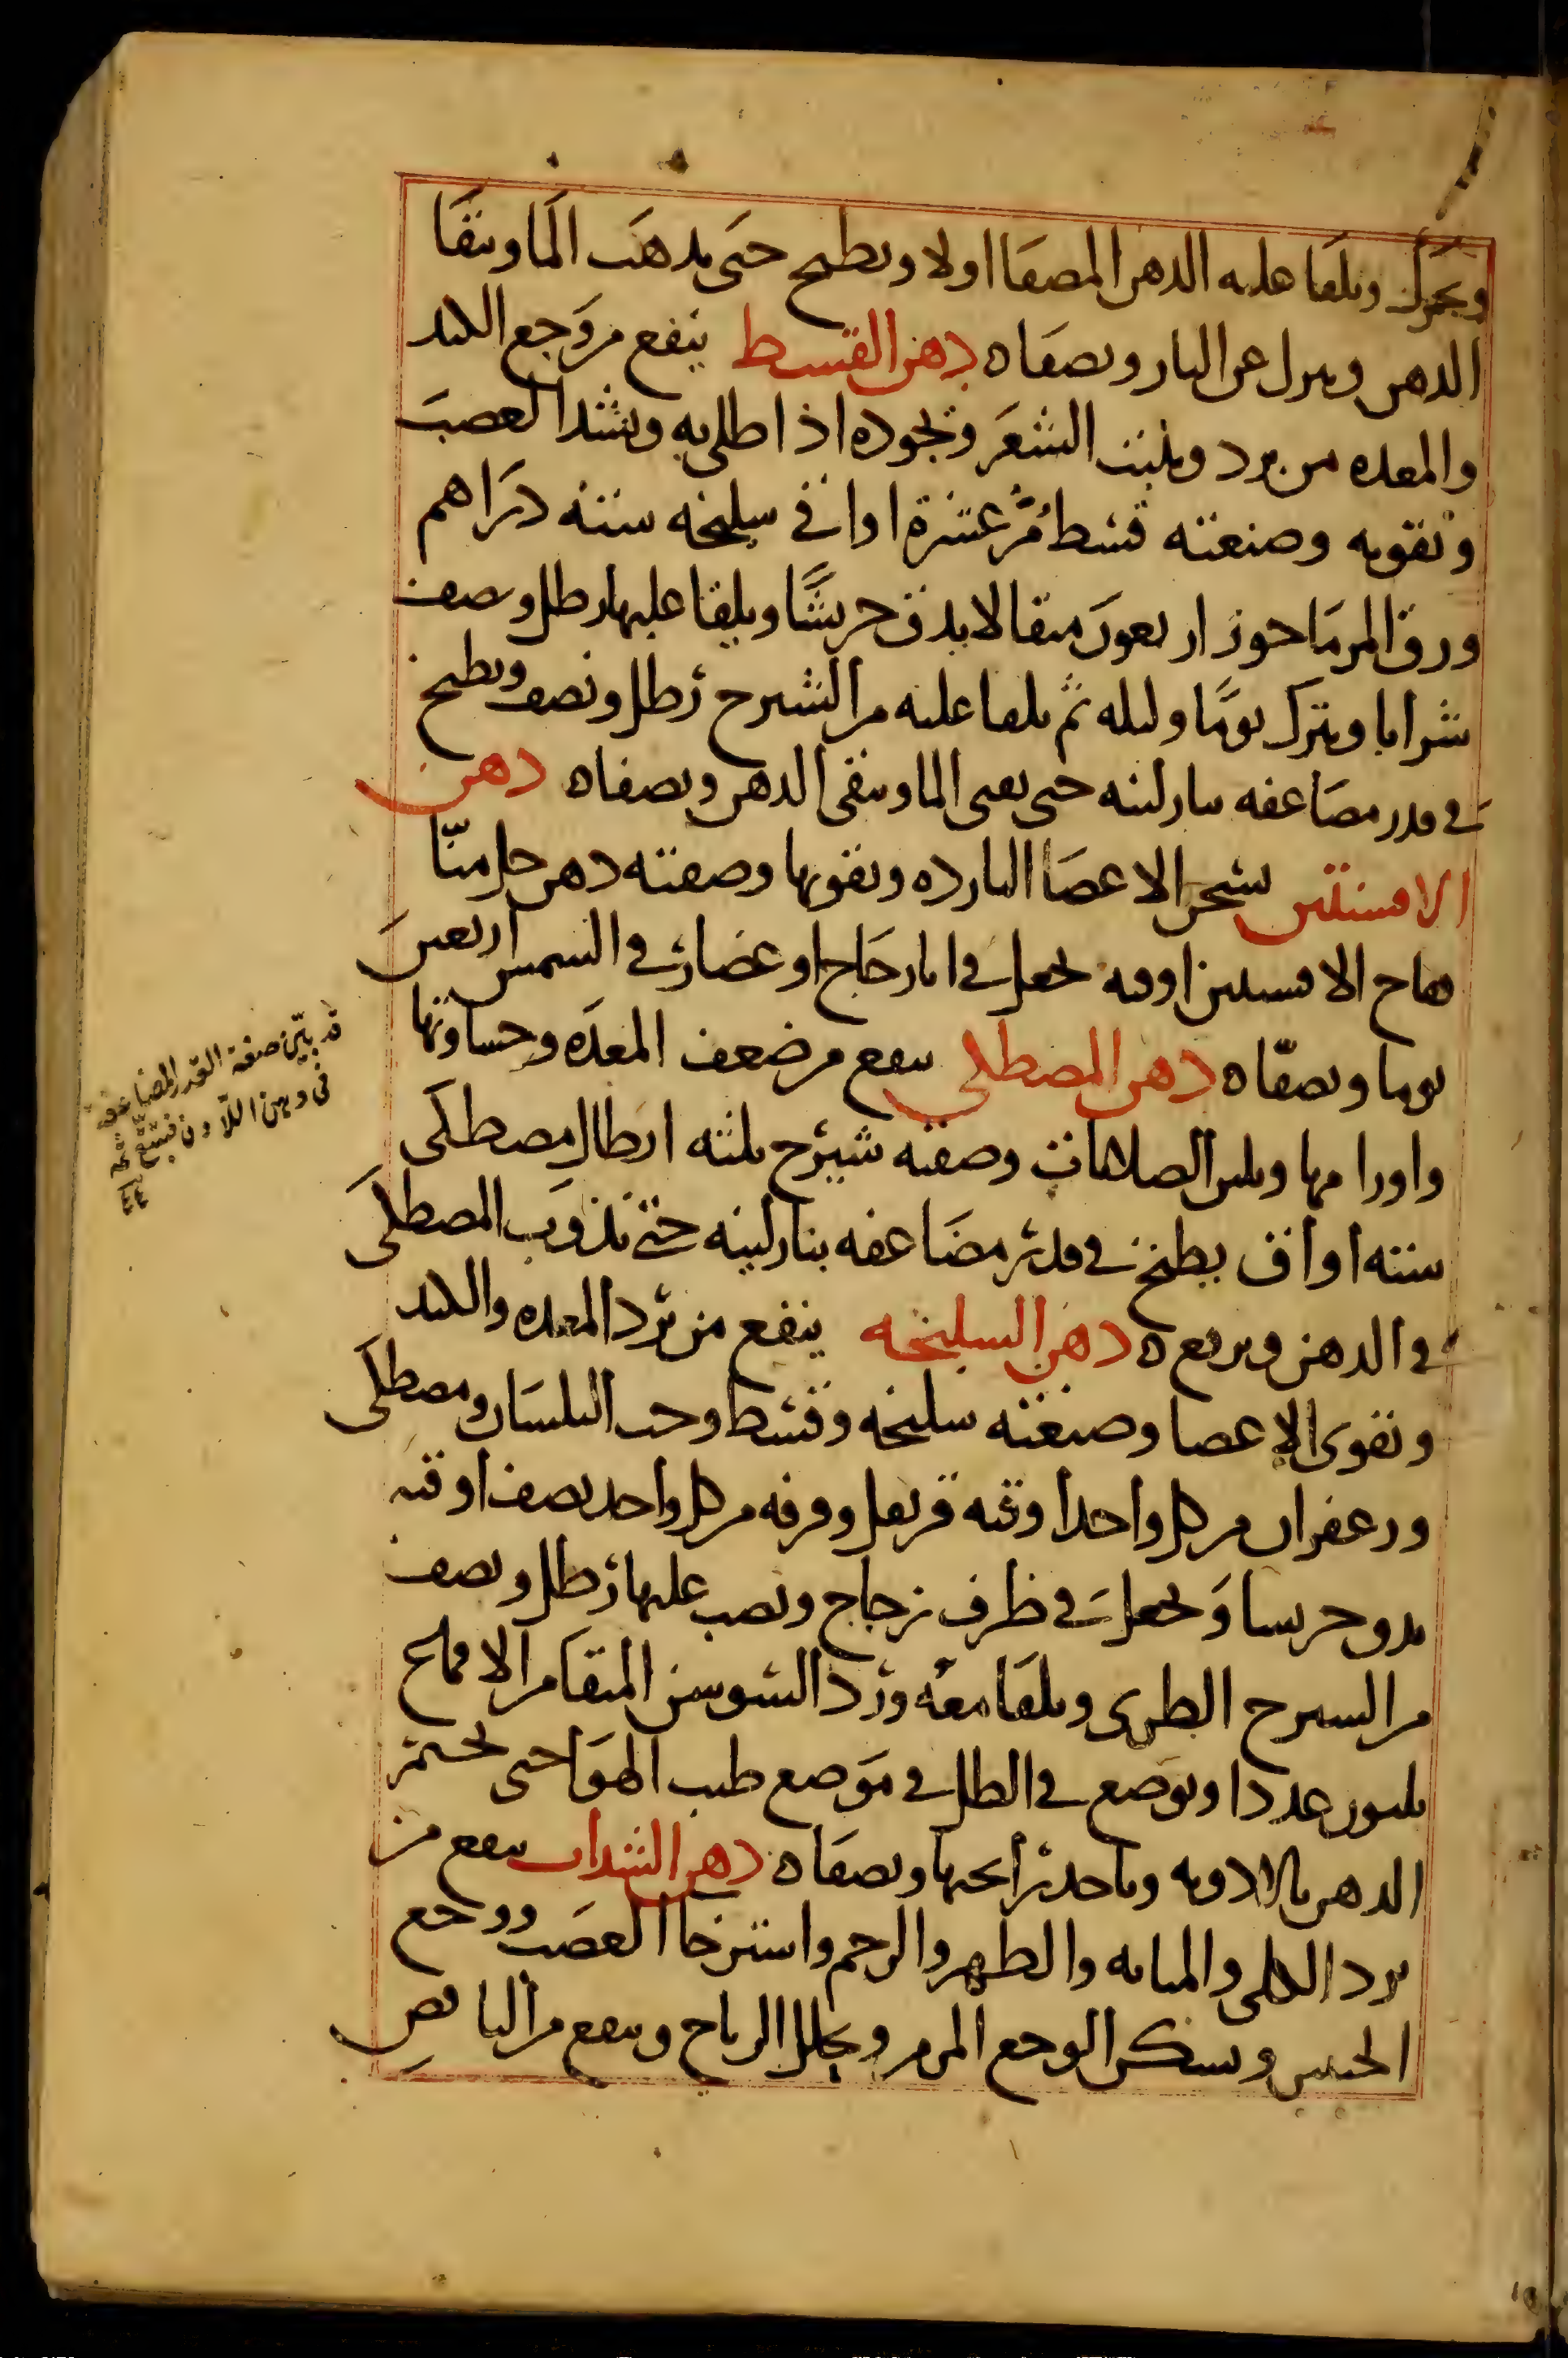 ويحرك ويلقا عليه الدهن المصفا اولا ويطبخ حتى يذهب الما ويبقا
الدهن وينزل عن النار ويصفاه دهن القسط ينفع من وجع الكبد
والمعده من برد وينبت الشعر ويجوده اذا طلي به ويشد العصب
ويقويه وصنعته قسط مر عشرة اواقي سليخه ستة دراهم
ورق المرماحوز اربعون مثقالا يدق جريشا ويلقا عليها رطل ونصف
شرابا ويترك يوما وليله ثم يلقا عليه من الشيرج رطل ونصف ويطبخ
في قدر مضاعفه بنار لينه حتى يفنى الما ويبقى الدهن ويصفاه دهن
الافسنتين يسخن الاعضا البارده ويقويها وصفته دهن حل منا
فقاح الافسنتين اوقيه يجعل في انا زجاج او غضار في الشمس اربعين
يوما ويصفاه دهن المصطكى ينفع من ضعف المعده وجساوتها
واورامها ويلين الصلابات وصفته شيرج ثلثه ارطال مصطكى
سته اواق يطبخ في قدر مضاعفه بنار لينه حتى تذوب المصطكى
في الدهن ويرفع ه دهن السليخه ينفع من برد المعده والكبد
ويقوى الاعضا وصنعته سليخه وقسط وحب البلسان ومصطكى
وزعفران من كل واحد اوقيه قرنفل وقرفه من كل واحد نصف اوقيه
يدق جريشا ويجعل في ظرف زجاج ويصب عليها رطل ونصف
من الشيرج الطرى ويلقا معه ورد السوسن المنقا من الاقماع
ثلثون عددا ويوضع في الظل في موضع طيب الهوا حتى يختمر
الدهن بالادويه وياخذ رايحتها ويصفاه دهن السذاب ينفع من
برد الكلى والمثانه والظهر والرحم واسترخا العصب ووجع
الجنبين ويسكن الوجع المزمن ويحلل الرياح وينفع من النافض
قد بين صفة القدر المضاعفة
في دهن اللادن